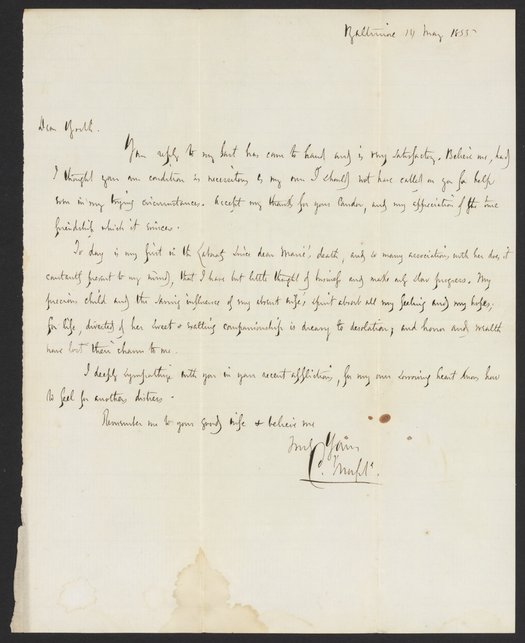 Baltimore 14 May 1855
Dear Booth.
Your reply to my last has come to hand and is very satisfactory. Believe me, had
I thought your own condition as necessitous as my own I should not have called on you for help
even in my trying circumstances. Accept my thanks for your candor, and my appreciation of the true
friendship which it evinces.
To day is my first in the Laboraty since dear Marie's death, and so many associations with her does it
constantly present to my mind, that I have but little thought of business and make only slow progress. My
precious child and the saving influence of my absent wife's spirit absorb all my feeling and my hopes.
for life, divested of her sweet & companionship is dreary to desolation; and honor and wealth
have lost their charm to me.
I deeply sympathise with you in your recent affliction, for my own sorrowing heart knows how
to feel for anothers distress.
Remember me to your good wife & believe me
Yours